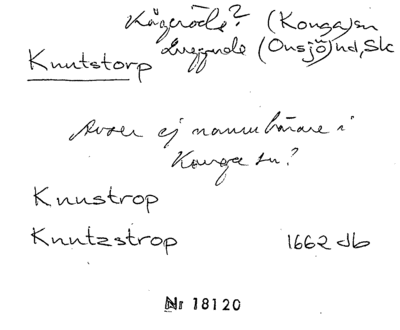 Kågeröds? (Konga)sn
Svappavde (Onsjö)hd, Sk
Knutstorp
Avser ej namnbärare i
Konga sn?
Knustrop
Knutzstrop 1662 db
Nr 18120